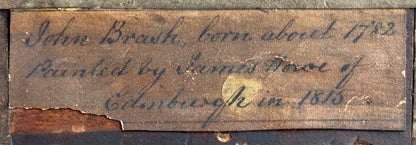 John Brash, born about 1782
Painted by James Howe of
Edinburgh in 1815